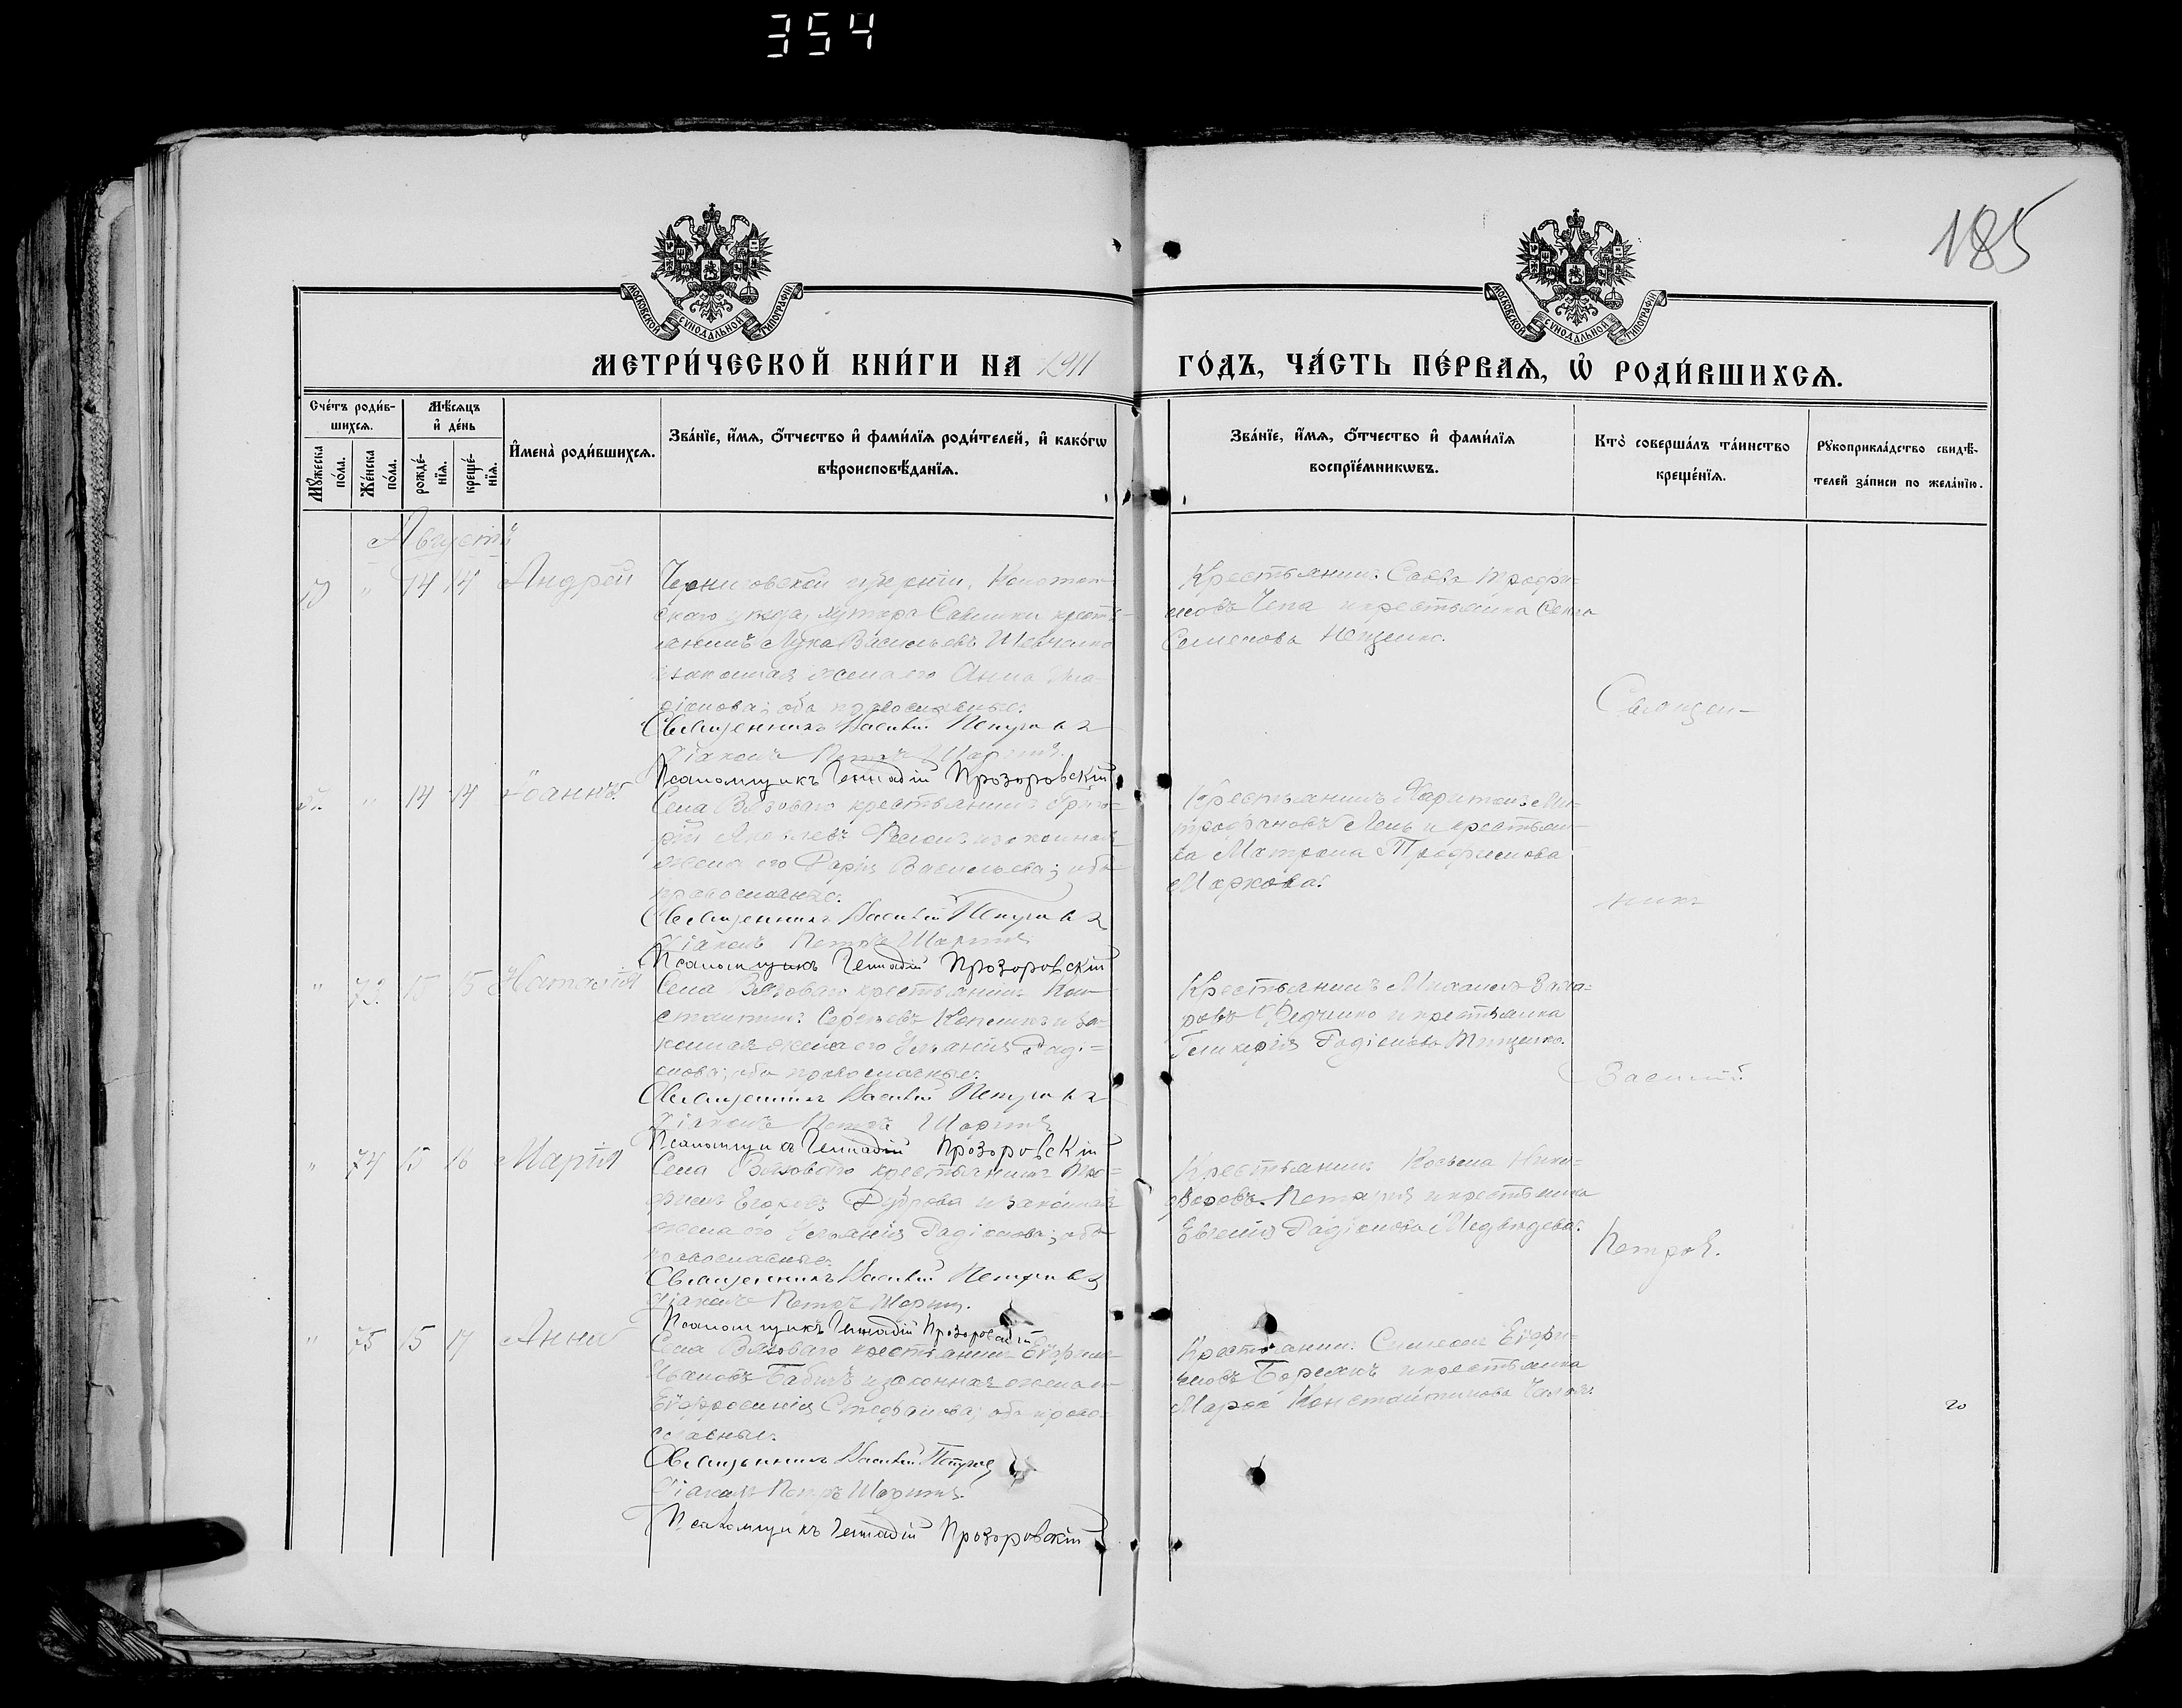 354
185
МОСКОВСКОЙ СѴНОДАЛЬНОЙ ТИПОГРАФІИ
МОСКОВСКОЙ СѴНОДАЛЬНОЙ ТИПОГРАФІИ
МЕТРИ́ЧЕСКОЙ КНИ́ГИ НА 1911 ГО́ДЪ, ЧА́СТЬ ПЕ́РВАѦ, Ѡ҆ РОДИ́ВШИХСѦ.
Сче́тъ роди́в-
шихсѧ.
Мꙋ́жеска по́ла.
Же́нска по́ла.
Мѣ́сѧцъ
и҆ де́нь
рожде́-
нїѧ.
креще́-
нїѧ.
И҆мена̀ роди́вшихсѧ.
Зва́нїе, и҆́мѧ, ѻ҆́тчество и҆ фами́лїѧ роди́телей, и҆ како́гѡ
вѣроисповѣ́данїѧ.
Зва́нїе, и҆́мѧ, ѻ҆́тчество и҆ фами́лїѧ
воспрїе́мникѡвъ.
Кто̀ соверша́лъ та́инство
креще́нїѧ.
Рꙋкоприкла́дство свидѣ́-
телей за́писи по жела́нїю.
Августъ
" 14 14 Андрей
Черниговской губерніи, Конотоп-
скаго уѣзда, хутора Савинки крестъ-
янинъ Лука Васильевъ Шевченко
и законная жена его Анна
оба православные.
Священникъ Василій Петровъ
Діаконъ Петръ
Псаломщикъ Геннадій Прозоровскій
Крестьянинъ Савва Трофи-
мовъ Чепа и крестьянка
Семенова
" 14 14 Іоаннъ
Села Вязоваго крестьянинъ Григо-
рій Яковлевъ и законная
жена его Дарія Васильева; оба
православные.
Священникъ Василій Петровъ
Діаконъ Петръ
Псаломщикъ Геннадій Прозоровскій
Крестьянинъ Харитонъ Ми-
трофановъ и крестьян-
ка Матрона Трофимова
Маркова.
" 73 15 15 Наталія
Села Вязоваго крестьянинъ Кон-
стантинъ Сергѣевъ и за-
конная жена его Уліанія Радіо-
нова; оба православные.
Священникъ Василій Петровъ
Діаконъ Петръ
Псаломщикъ Геннадій Прозоровскій
Крестьянинъ Михаилъ Заха-
ровъ Федченко и крестьянка
Гликерія Радіонова Тищенко.
" 74 15 16 Марія
Села Вязоваго крестьянинъ Тро-
фимъ Егоровъ Дуброва и законная
жена его Уліанія Радіонова; оба
православные.
Священникъ Василій Петровъ
Діаконъ Петръ
Псаломщикъ Геннадій Прозоровскій
Крестьянинъ Косьма Ники-
форовъ и крестьянка
Евгенія Радіонова Медвѣдева.
" 75 15 17 Анна
Села Вязоваго крестьянинъ Евфимъ
Ивановъ Бабичъ и законная жена его
Евфросинія Стефанова; оба право-
славные.
Священникъ Василій Петровъ
Діаконъ Петръ
Псаломщикъ Геннадій Прозоровскій
Крестьянинъ Симеонъ Евфи-
мовъ и крестьянка
Марѳа Константинова
Священ-
никъ
Василій
Петровъ.
20